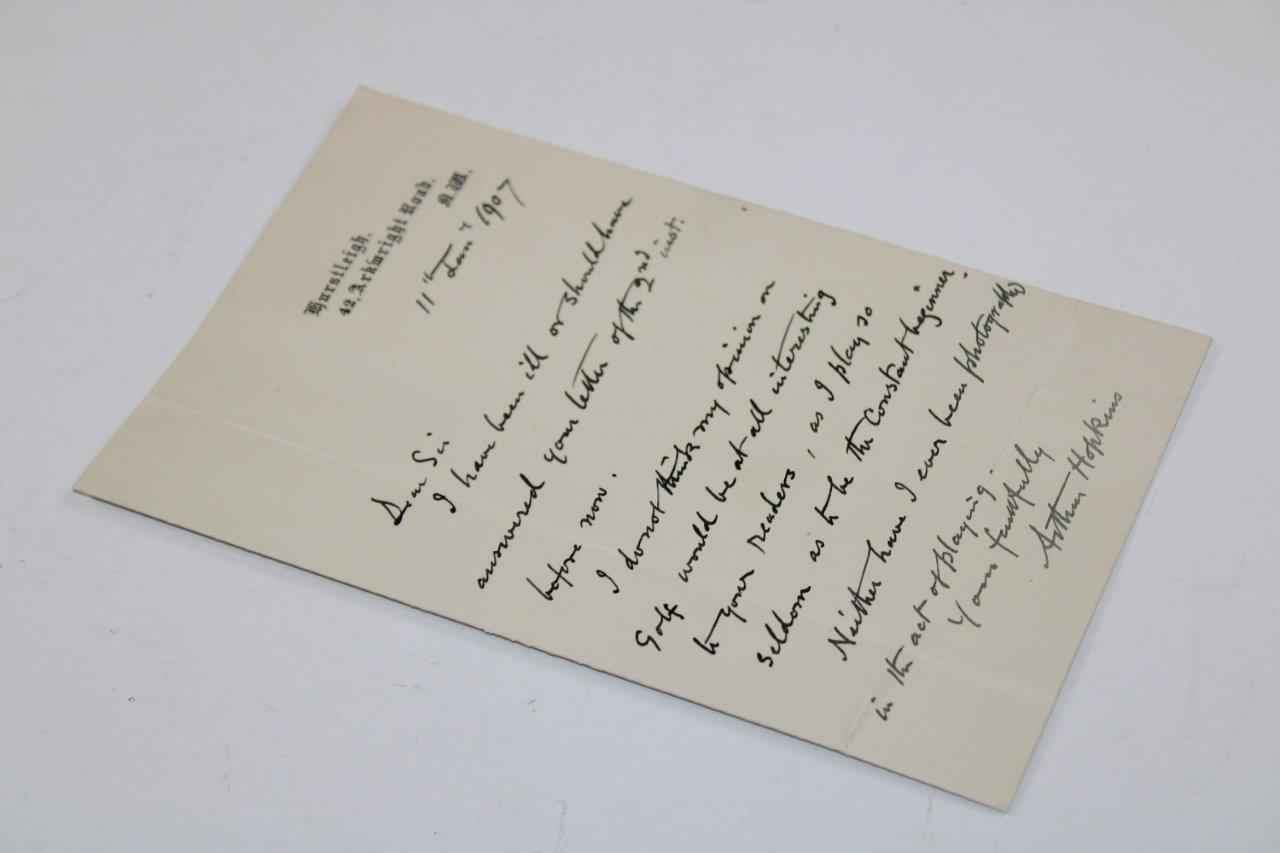 Hurstleigh,
42, Arkwright Road,
N.W.
11th Jany 1907
Dear Sir
I have been ill or should have
answered your letter of the 2nd inst.
before now.
I do not think my opinion on
Golf would be at all interesting
to your readers, as I play so
seldom as to be the Constant beginner.
Neither have I ever been photographed
in the act of playing.
Yours faithfully
Arthur Hopkins